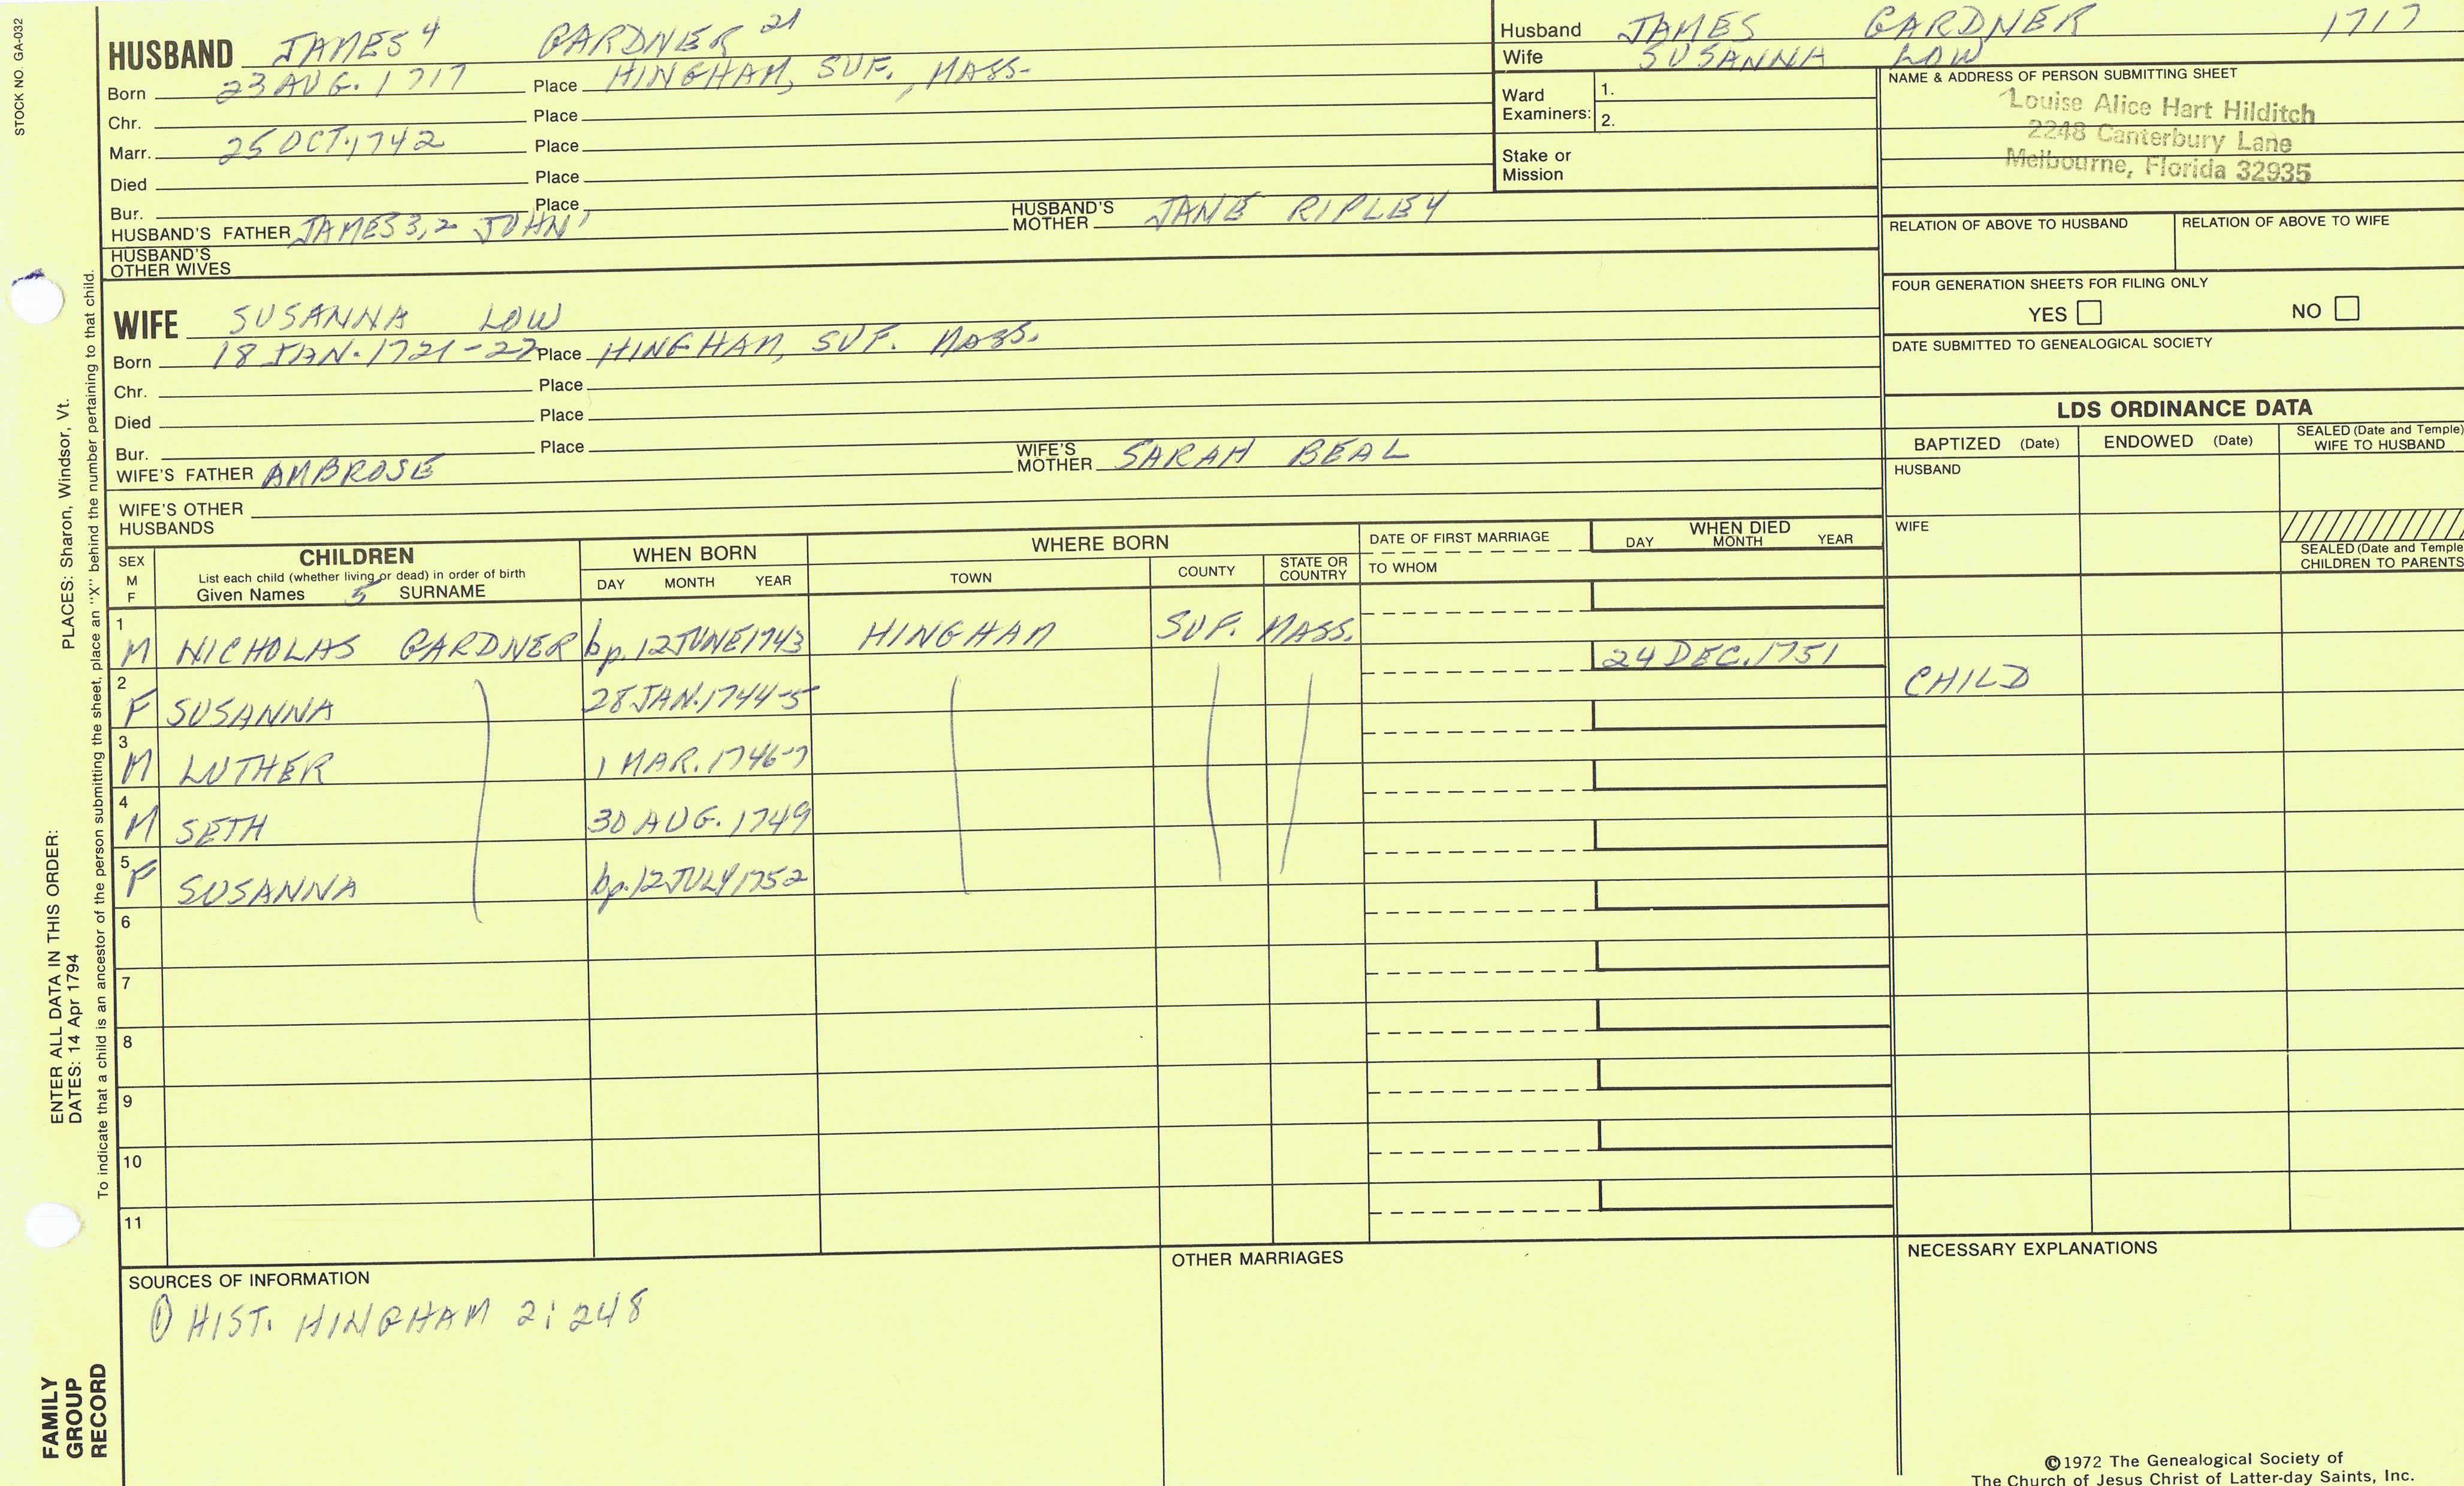 STOCK NO. GA-032
HUSBAND JAMES 4 GARDNER 21
Born 23 AUG. 1717 Place HINGHAM, SUF., MASS.
Chr. Place
Marr. 25 OCT. 1742 Place
Died Place
Bur. Place
HUSBAND'S FATHER JAMES 3,2 JOHN 1 HUSBAND'S MOTHER JANE RIPLEY
HUSBAND'S OTHER WIVES
WIFE SUSANNA LOW
Born 18 JAN. 1721-22 Place HINGHAM, SUF. MASS.
Chr. Place
Died Place
Bur. Place
WIFE'S FATHER AMBROSE WIFE'S MOTHER SARAH BEAL
WIFE'S OTHER HUSBANDS
Husband JAMES GARDNER 1717
Wife SUSANNA LOW
Ward Examiners: 1.
2.
Stake or Mission
NAME & ADDRESS OF PERSON SUBMITTING SHEET
Louise Alice Hart Hilditch
2248 Canterbury Lane
Melbourne, Florida 32935
RELATION OF ABOVE TO HUSBAND RELATION OF ABOVE TO WIFE
FOUR GENERATION SHEETS FOR FILING ONLY
YES NO
DATE SUBMITTED TO GENEALOGICAL SOCIETY
LDS ORDINANCE DATA
BAPTIZED (Date) ENDOWED (Date) SEALED (Date and Temple) WIFE TO HUSBAND
HUSBAND
WIFE
SEALED (Date and Temple
CHILDREN TO PARENTS
SEX M F
CHILDREN
List each child (whether living or dead) in order of birth
Given Names 5 SURNAME
WHEN BORN
DAY MONTH YEAR
WHERE BORN
TOWN COUNTY STATE OR COUNTRY
DATE OF FIRST MARRIAGE
TO WHOM
WHEN DIED
DAY MONTH YEAR
1 M NICHOLAS GARDNER bp. 12 JUNE 1743 HINGHAM SUF. MASS.
2 F SUSANNA 28 JAN. 1744-5 24 DEC. 1751 CHILD
3 M LUTHER 1 MAR. 1746-7
4 M SETH 30 AUG. 1749
5 F SUSANNA bp. 12 JULY 1752
6
7
8
9
10
11
SOURCES OF INFORMATION
① HIST. HINGHAM 2:248
OTHER MARRIAGES
NECESSARY EXPLANATIONS
©1972 The Genealogical Society of
The Church of Jesus Christ of Latter-day Saints, Inc.
ENTER ALL DATA IN THIS ORDER:
DATES: 14 Apr 1794
PLACES: Sharon, Windsor, Vt.
To indicate that a child is an ancestor of the person submitting the sheet, place an "X" behind the number pertaining to that child.
FAMILY
GROUP
RECORD